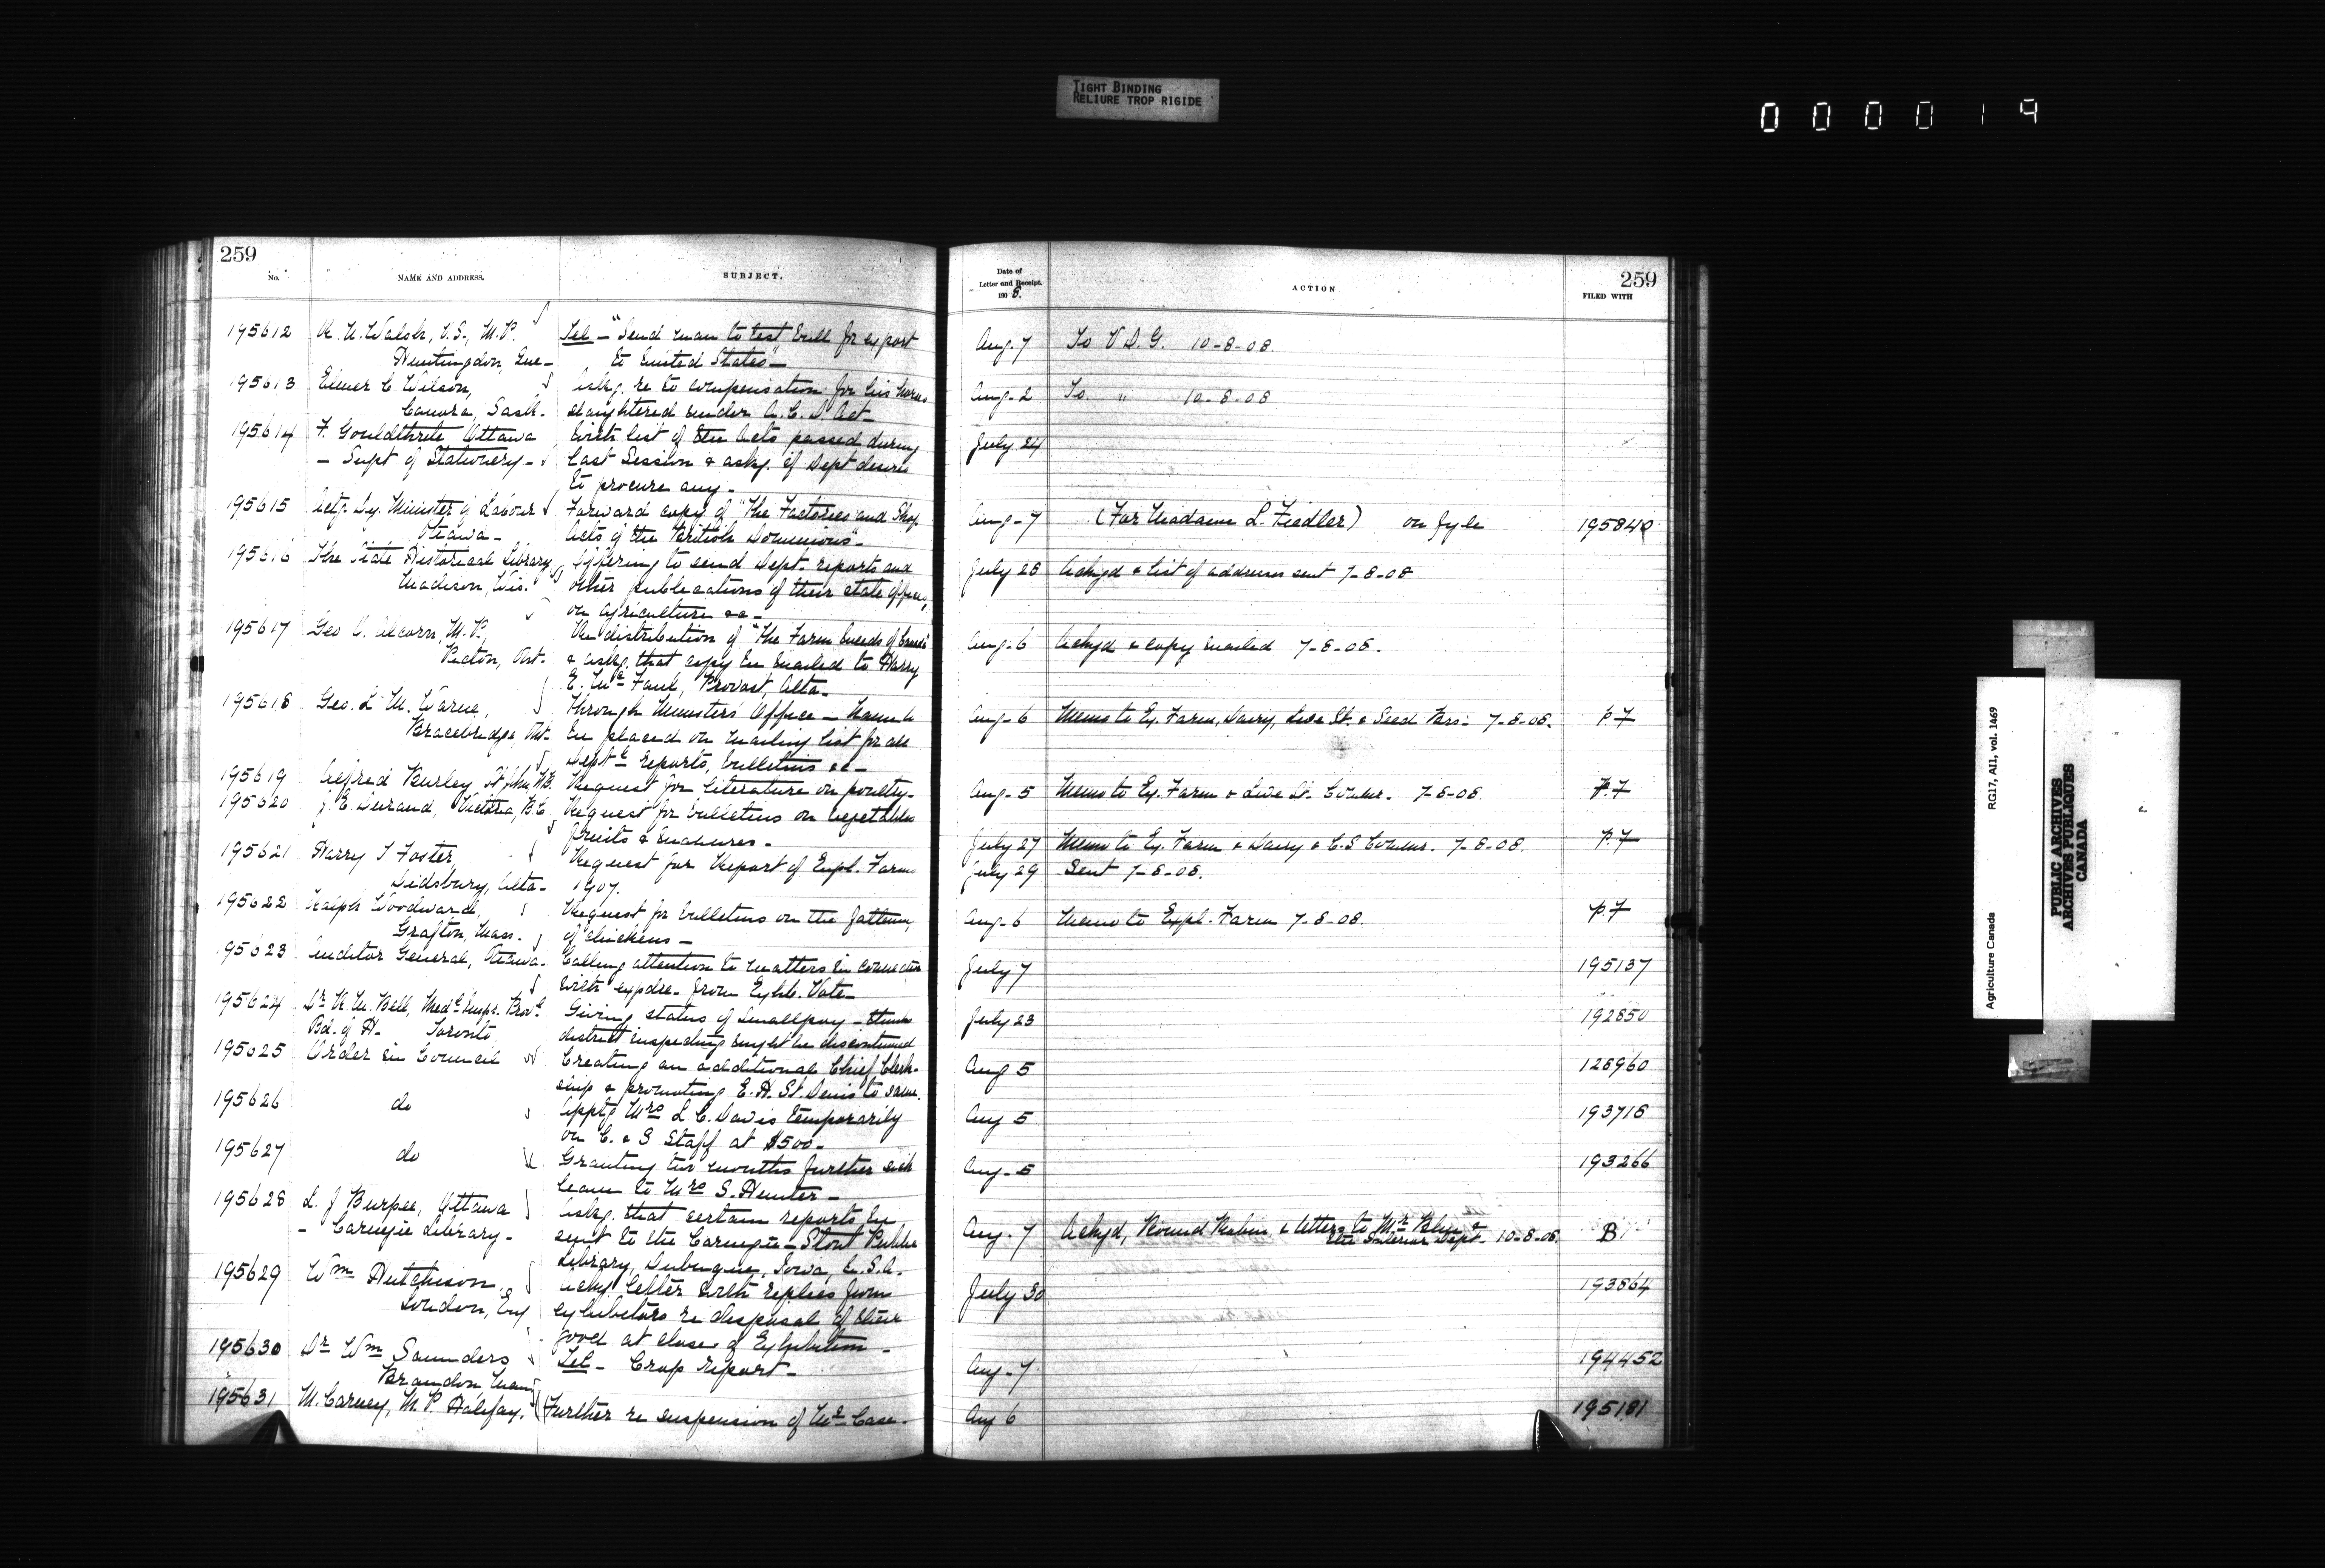 TIGHT BINDING
RELIURE TROP RIGIDE
000019
259
No.
NAME AND ADDRESS.
SUBJECT.
195612
Walsh, V.S., M.P.
Huntingdon, Que-
Tel - "Send man to test bull for export
to United States" -
195613
Elmer C Wilson,
Canora, Sask.
Askg. re to compensation for his horses
slaughtered under A.C.D Act -
195614
F. Gouldthrite, Ottawa
- Supt of Stationery -
With list of the Acts passed during
last Session & askg. if Dept desires
to procure any -
195615
Actg. Dy. Minister of Labour
Ottawa -
Forward copy of "The Factories and Shop
Acts of the British Dominions" -
195616
The State Historical Library,
Madison, Wis.
Offering to send Dept. reports and
other publications of their state offices,
on agriculture &c -
195617
Geo Alcorn, M.P.,
Picton, Ont.
Re distribution of "The Farm Weeds of Canada"
& askg. that copy be mailed to Harry
E. Mc Faul, Provost, Alta -
195618
Geo. L M. Warne,
Bracebridge, Ont.
Through Minister's Office - Name to
be placed on mailing list for all
Deptl Reports, bulletins &c -
195619
Alfred Burley St John N.B.
Request for literature on poultry -
195620
J. E. Durand, Victoria, B.C
Request for bulletins on vegetables
fruits & manures -
195621
Harry T Foster,
Didsbury, Alta -
Request for Report of Expl. Farms
1907.
195622
Ralph Woodward,
Grafton, Mass.
Request for bulletins on the fattening
of chickens -
195623
Auditor General, Ottawa -
Calling attention to matters in connection
with expdre. from Exhb. Vote -
195624
Dr Bell, Medl Inspr. Provl
Bd. of H. Toronto
Giving status of Smallpox - thinks
district inspecting might be discontinued
195625
Order in Council
Creating an additional Chief Clerk-
ship & promoting E. H. St. Denis to same.
195626
do
Apptg Mrs L C. Davis temporarily
on C. & S Staff at $500 -
195627
do
Granting two months further sick
leave to Mrs S. Hunter -
195628
L. J Burpee, Ottawa
- Carnegie Library -
Askg. that certain reports be
sent to the Carnegie - Stout Public
Library, Dubuque, Iowa, U.S.A.
195629
Wm Hutchison,
London, Eng
Ackg. letter with replies from
exhibitors re disposal of their
good at close of Exhibition -
195630
Dr Wm Saunders
Brandon Man
Tel - Crop report -
195631
M. Carney, M.P. Halifax.
Further re suspension of Mr Case -
259
Date of
Letter and Receipt.
1908.
ACTION
FILED WITH
Aug. 7 To V D. G. 10-8-08.
Aug - 2 To " 10-8-08
July 24
Aug - 7 (For Madame L. Fiedler) on fyle 195840
July 28 Ackgd & list of addresses sent 7-8-08
Aug - 6 Ackgd & copy mailed 7-8-08.
Aug - 6 Memo to Ex. Farm, Dairy, Live St. & Seed Brs: 7-8-08. p. 7
Aug - 5 Memo to Ex. Farm & Live St. Commr. 7-8-08. p. 7
July 27 Memo to Ex. Farm & Dairy & C.S Commr. 7-8-08. p. 7
July 29 Sent 7-8-08.
Aug - 6 Memo to Expl. Farm 7-8-08. p. 7
July 7 195137
July 23 192850
Aug 5 128960
Aug 5 193718
Aug - 5 193266
Aug. 7 Ackgd, Round Robin, & letters to Mr Blue &
the Interior Dept. 10-8-08. B
July 30 193864
Aug - 7 194452
Aug 6 195181
Agriculture Canada
RG17, AII, vol. 1469
PUBLIC ARCHIVES
ARCHIVES PUBLIQUES
CANADA